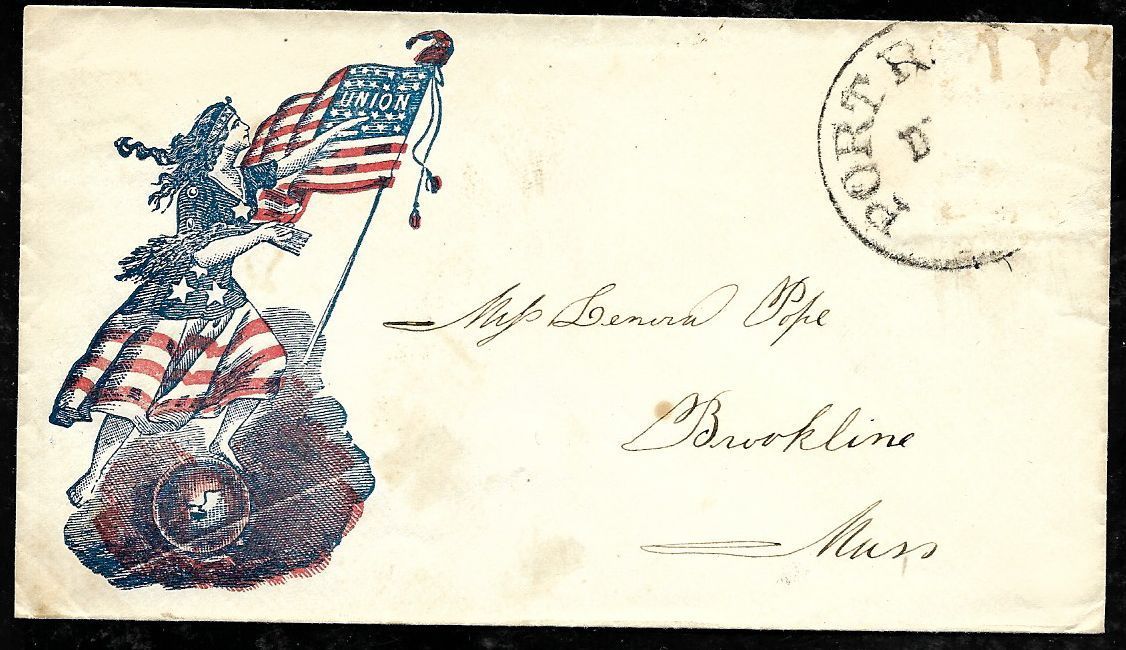 UNION
PORT R
D
Miss Lenora Pope
Brookline
Mass